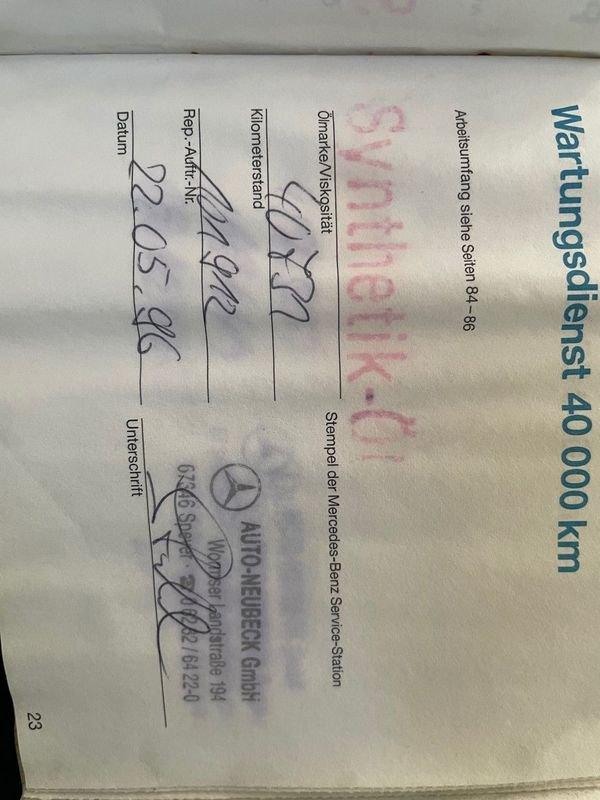 Wartungsdienst 40 000 km
Arbeitsumfang siehe Seiten 84–86
Synthetik-Öl
Ölmarke/Viskosität
40751
Kilometerstand
Rep.-Auftr.-Nr.
22.05.96
Datum
Stempel der Mercedes-Benz Service-Station
AUTO-NEUBECK GmbH
Wormser Landstraße 194
67346 Speyer · ☎ 0 62 32 / 64 22-0
Unterschrift
23